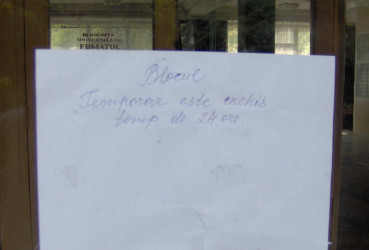 FUMATUL
Blocul
Temporar este inchis
timp de 24 ore.